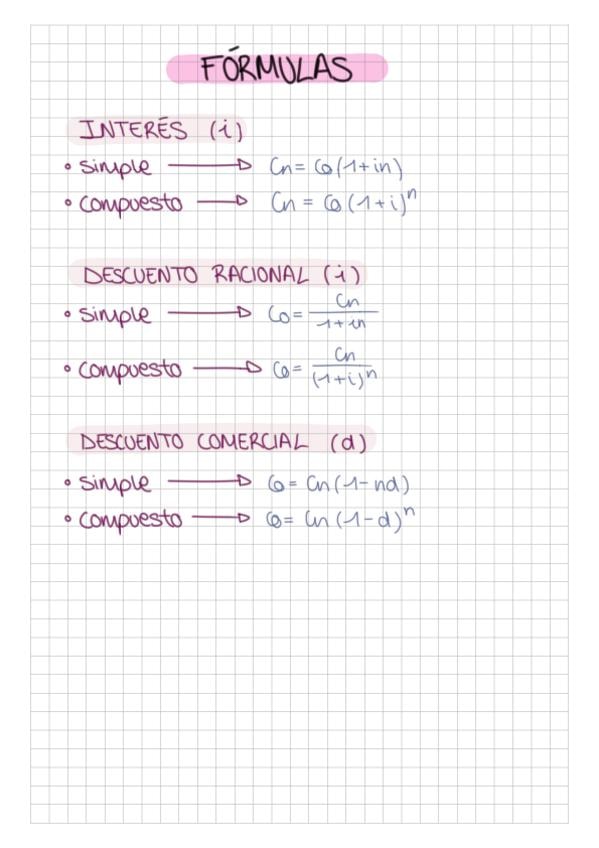 FÓRMULAS
INTERÉS (i)
• simple → Cn = C0(1+in)
• compuesto → Cn = C0(1+i)^n
DESCUENTO RACIONAL (i)
• simple → C0 = Cn / 1+in
• compuesto → C0 = Cn / (1+i)^n
DESCUENTO COMERCIAL (d)
• simple → C0 = Cn(1-nd)
• compuesto → C0 = Cn(1-d)^n